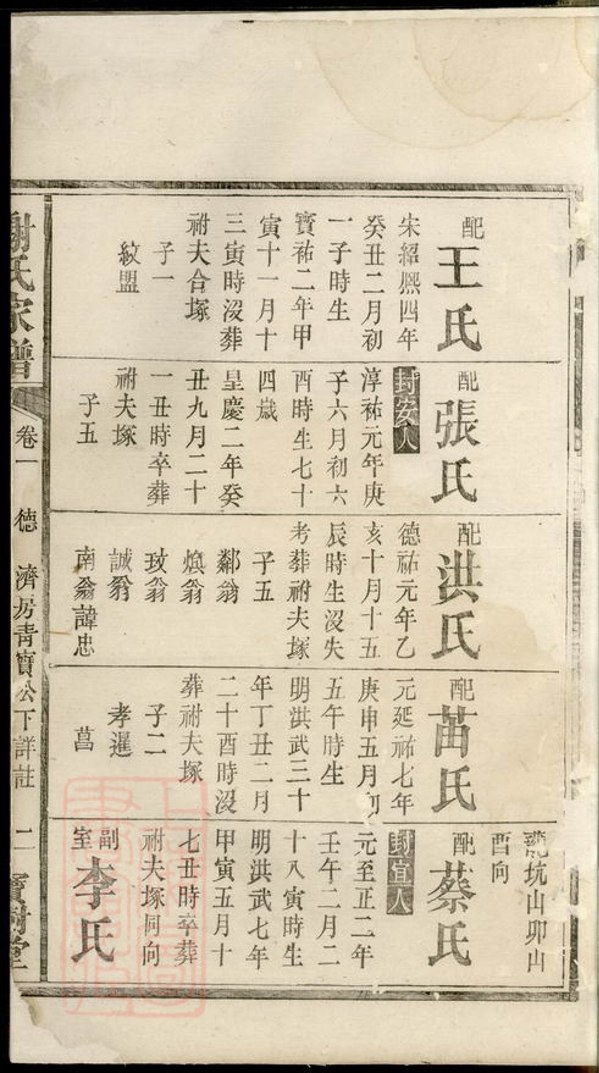 配
王氏
宋紹熙四年
癸丑二月初
一子時生
寶祐二年甲
寅十一月十
三寅時沒葬
祔夫合塚
子一
紋盟
配
張氏
封安人
淳祐元年庚
子六月初六
酉時生七十
四歲
皇慶二年癸
丑九月二十
一丑時卒葬
祔夫塚
子五
配
洪氏
德祐元年乙
亥十月十五
辰時生沒失
考葬祔夫塚
子五
鄰翁
煥翁
玫翁
誠翁
南翁諱忠
配
苗氏
元延祐七年
庚申五月初
五午時生
明洪武三十
年丁丑二月
二十酉時沒
葬祔夫塚
子二
孝暹
菖
龍坑山卯山
酉向
配
蔡氏
封宜人
元至正二年
壬午二月二
十八寅時生
明洪武七年
甲寅五月十
七丑時卒葬
祔夫塚同向
副室
李氏
謝氏家譜
卷一 德濟房青寶公下詳註 二 寶樹堂